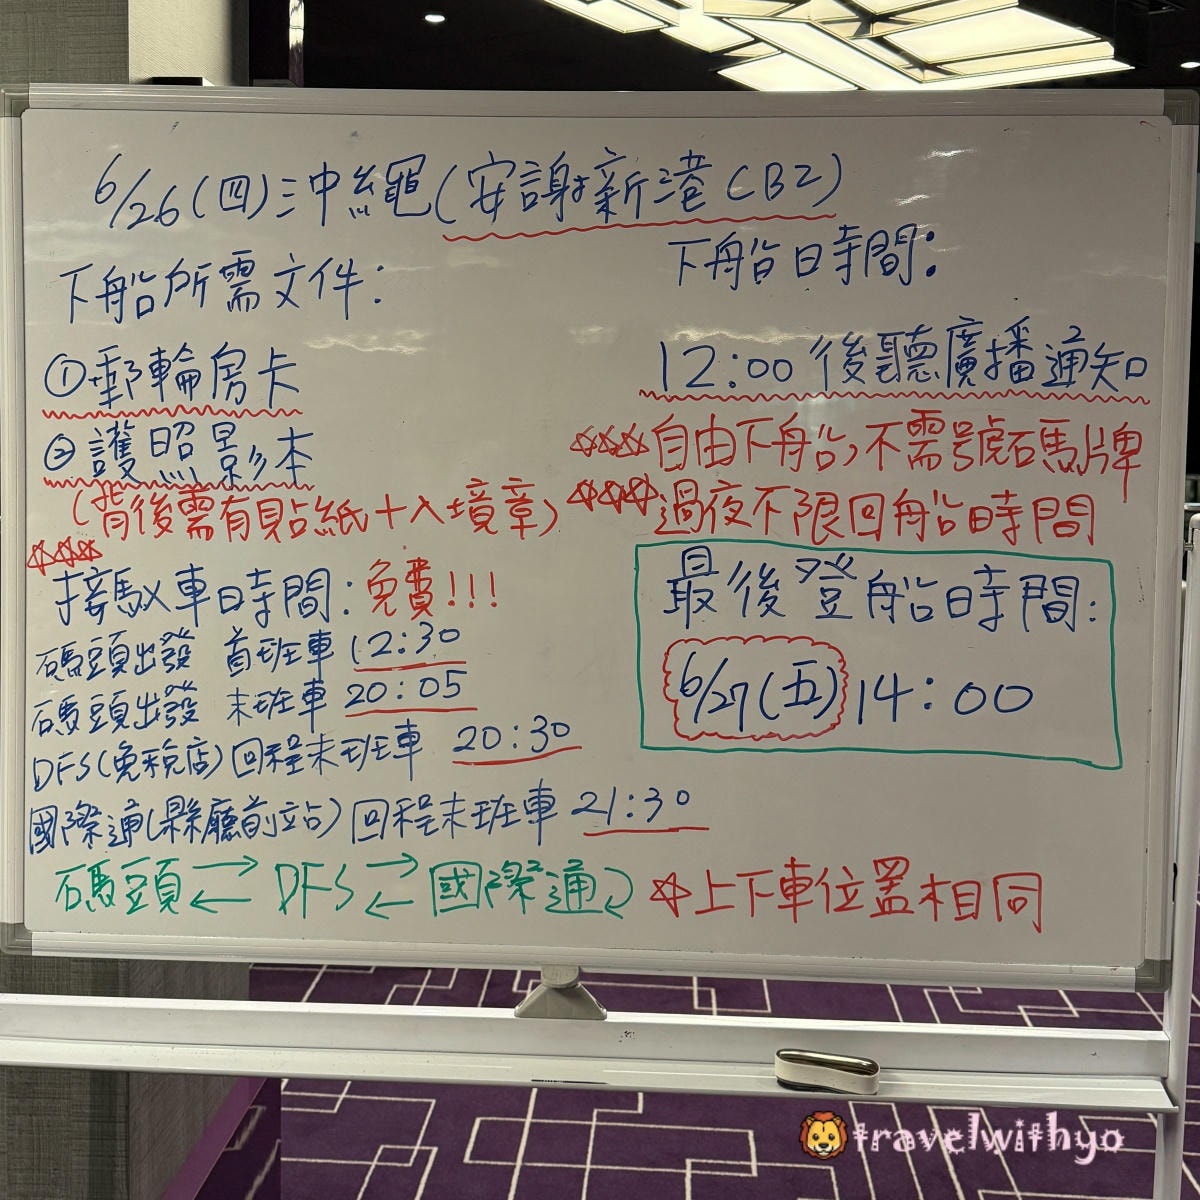 6/26(四)沖繩(安謝新港CB2)
下船所需文件:
①郵輪房卡
②護照影本
(背後需有貼紙+入境章)
下船時間:
12:00後聽廣播通知
☆☆☆自由下船,不需號碼牌
☆☆☆過夜不限回船時間
最後登船時間:
6/27(五)14:00
☆☆☆
接駁車時間:免費!!!
碼頭出發 首班車 12:30
碼頭出發 末班車 20:05
DFS(免稅店)回程末班車 20:30
國際通(縣廳前站)回程末班車 21:30
碼頭⇄DFS⇄國際通
☆上下車位置相同
travelwithyo